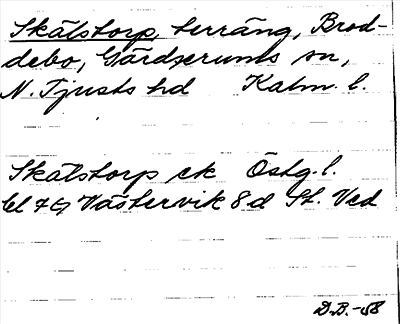 Skälstorp, terräng, Brod-
debo, Gärdserums sn,
N. Tjusts hd Kalm. l.
Skälstorp ek Östg. l.
bl 7G Västervik 8d St. Ved
D.B. -58